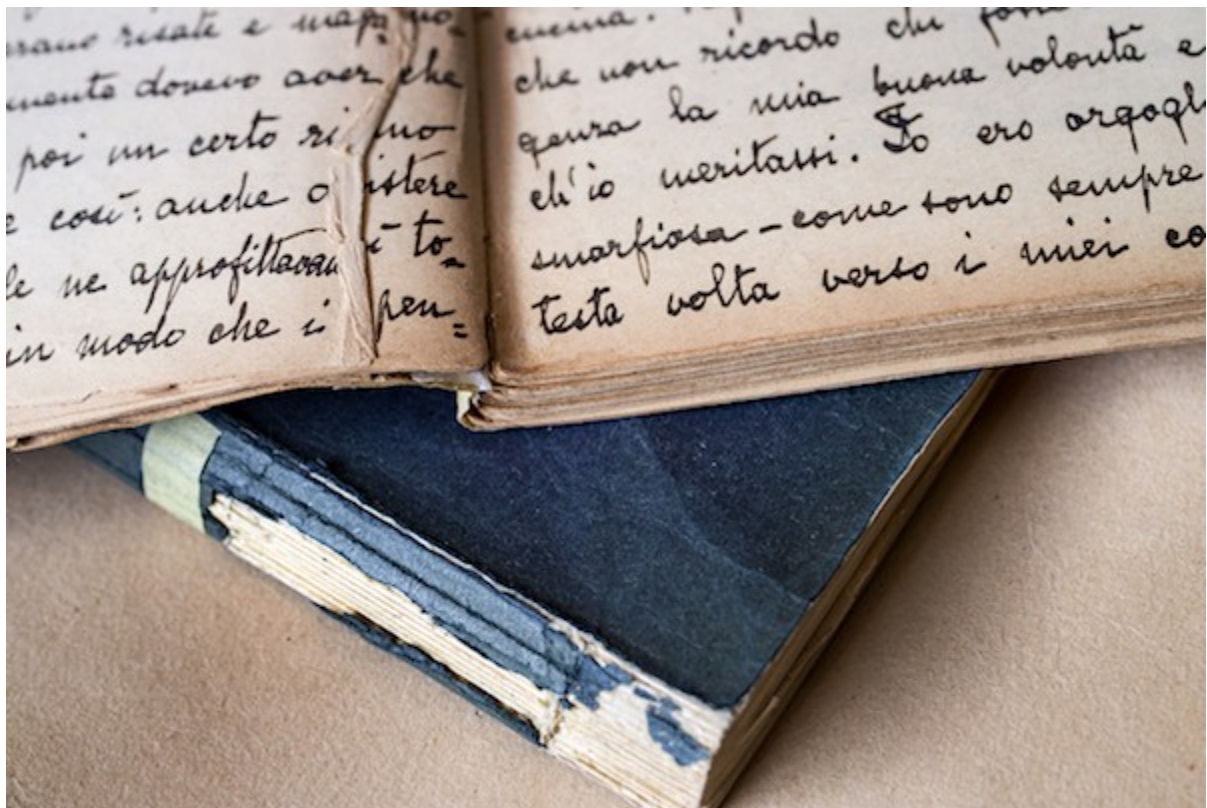 risate e
mente dovevo aver che
poi un certo
e così: anche
le ne approfittavan to=
in modo che i pen=
cucina.
che non ricordo chi
genza la mia buona volontà e
ch'io meritassi. Io ero orgogl
smorfiosa - come sono sempre
testa volta verso i miei co